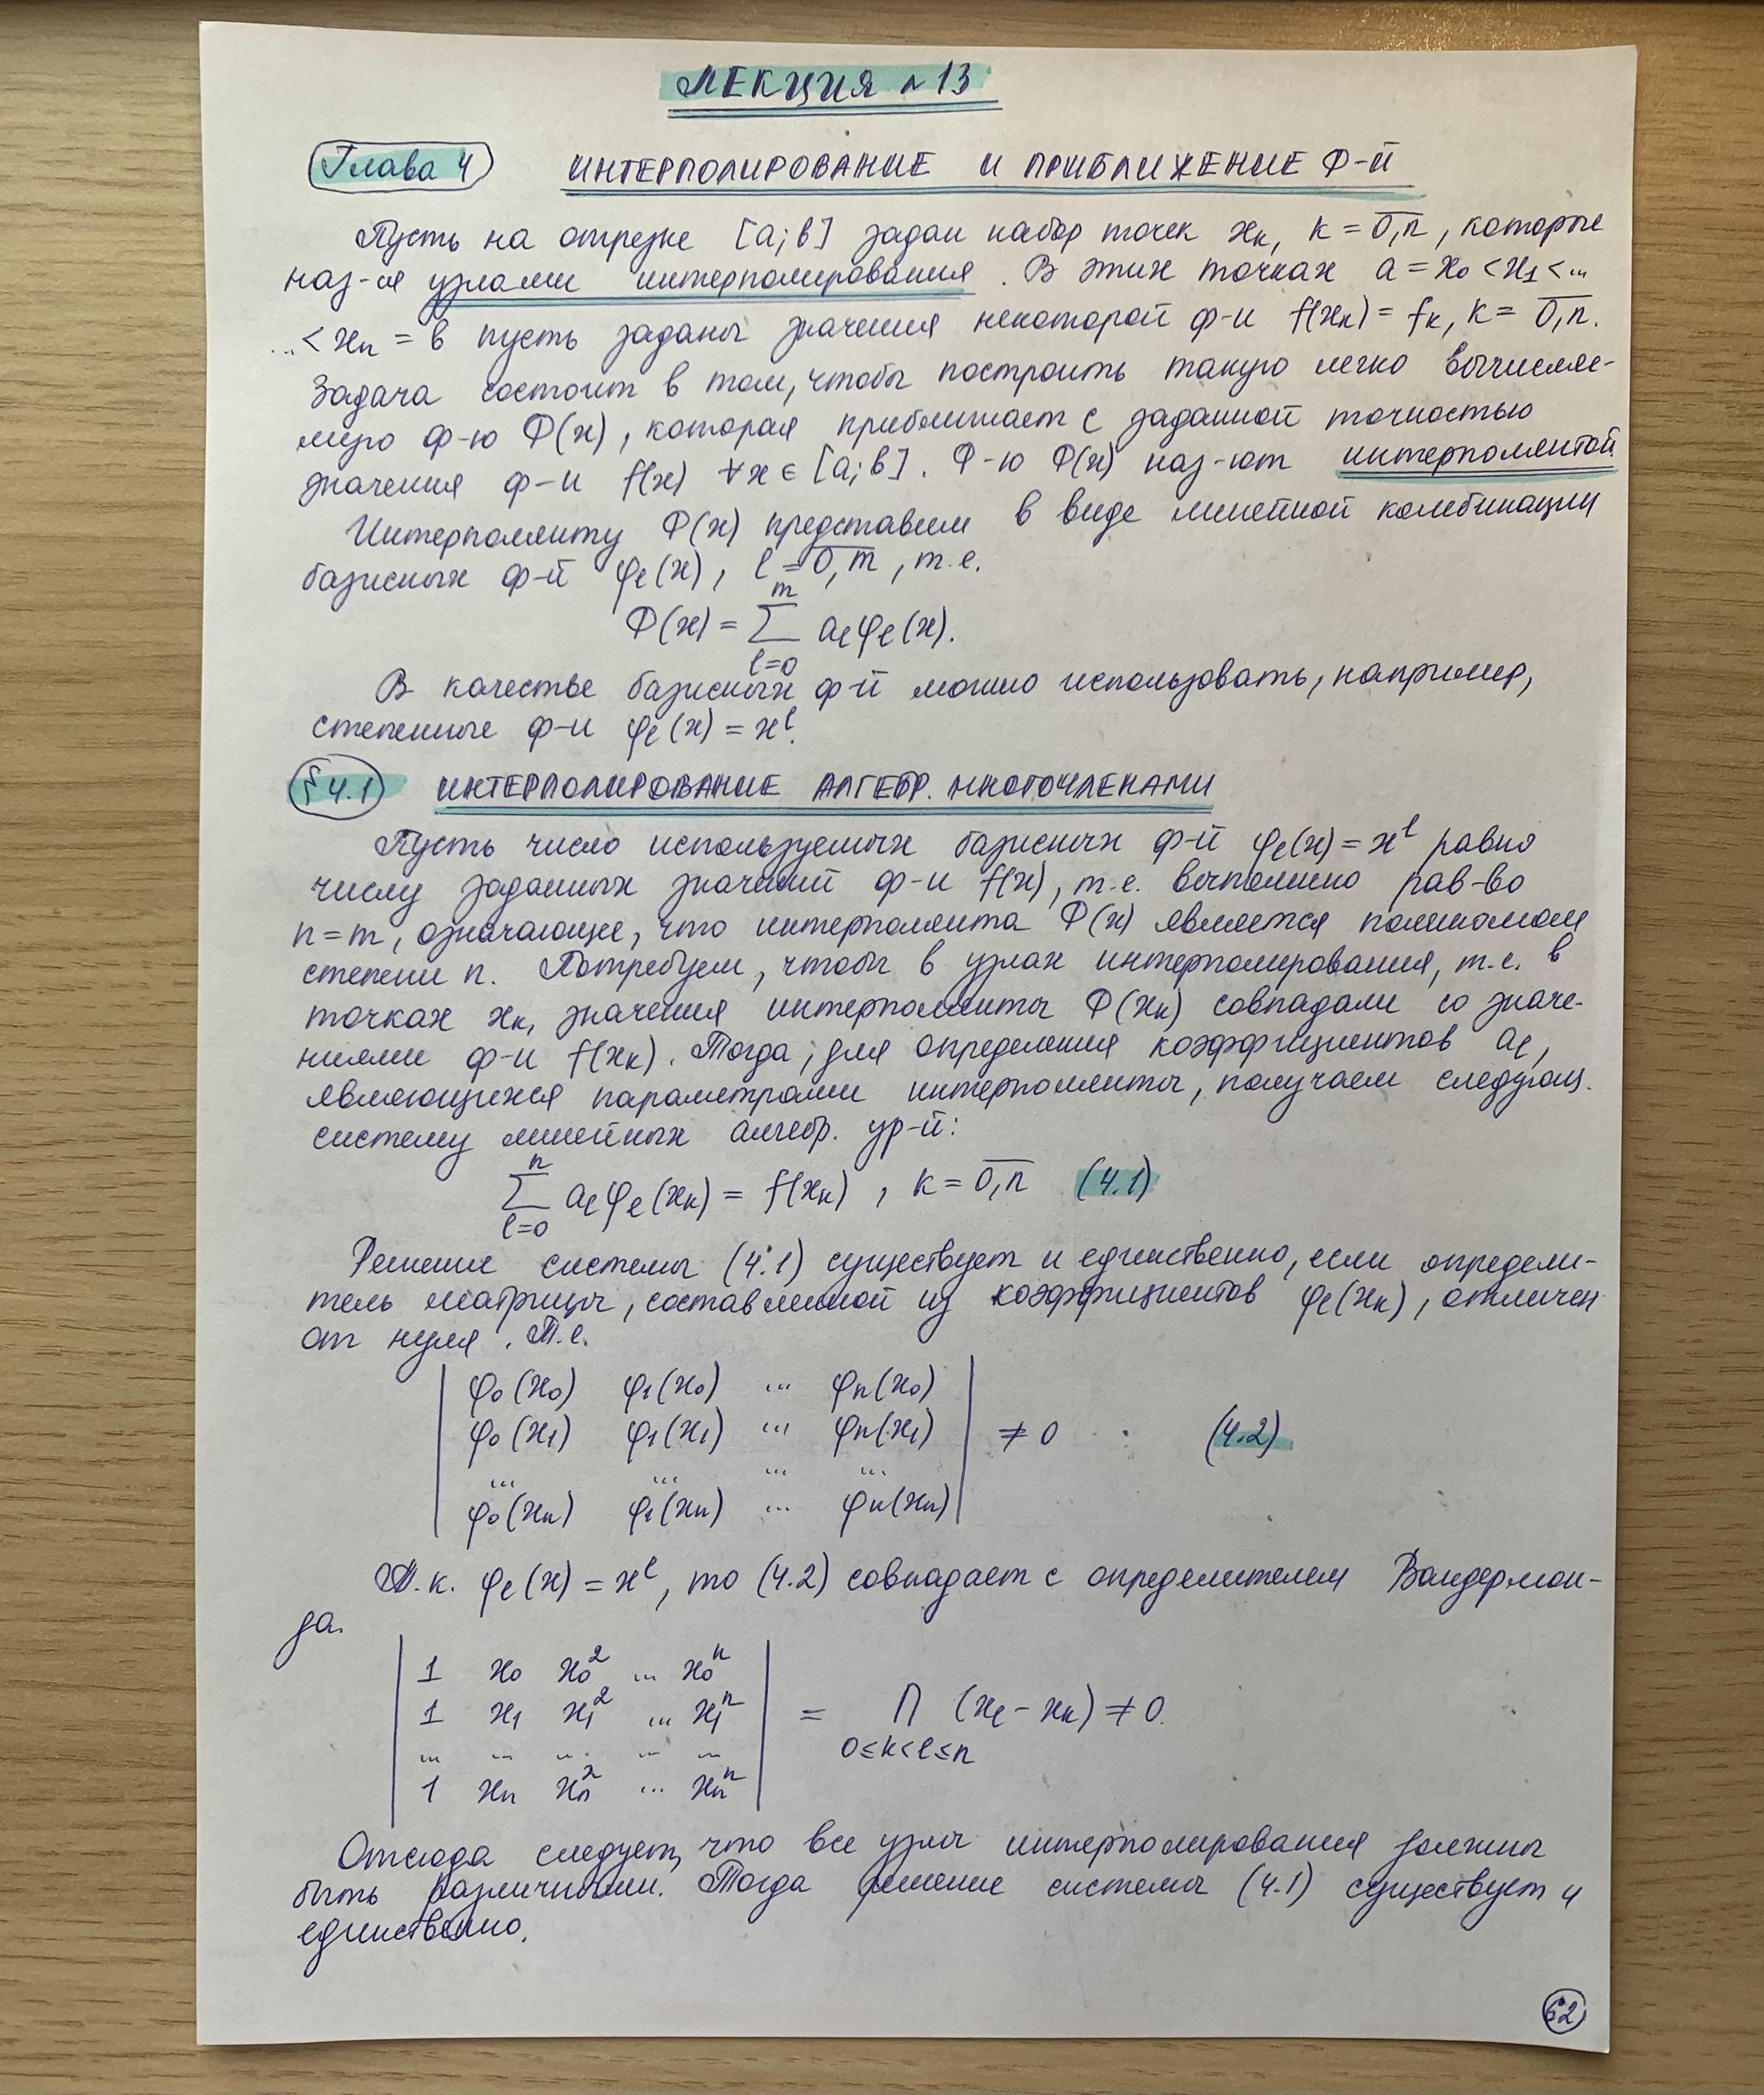 ЛЕКЦИЯ № 13
Глава 4 ИНТЕРПОЛИРОВАНИЕ И ПРИБЛИЖЕНИЕ Ф-Й
Пусть на отрезке [a; b] задан набор точек xₖ, k = 0,n̅, которые
наз-ся узлами интерполирования. В этих точках a = x₀ < x₁ < ...
... < xₙ = b пусть заданы значения некоторой ф-и f(xₖ) = fₖ, k = 0,n̅.
Задача состоит в том, чтобы построить такую легко вычисляе-
мую ф-ю Φ(x), которая приближает с заданной точностью
значения ф-и f(x) ∀x ∈ [a; b]. Ф-ю Φ(x) наз-ют интерполянтой.
Интерполянту Φ(x) представим в виде линейной комбинации
базисных ф-й φₗ(x), l = 0,m̅, т.е.
Φ(x) = ∑_{l=0}^{m} aₗφₗ(x).
В качестве базисных ф-й можно использовать, например,
степенные ф-и φₗ(x) = xˡ.
§ 4.1 ИНТЕРПОЛИРОВАНИЕ АЛГЕБР. МНОГОЧЛЕНАМИ
Пусть число используемых базисных ф-й φₗ(x) = xˡ равно
числу заданных значений ф-и f(x), т.е. выполнено рав-во
n = m, означающее, что интерполянта Φ(x) является полиномом
степени n. Потребуем, чтобы в узлах интерполирования, т.е. в
точках xₖ, значения интерполянты Φ(xₖ) совпадали со значе-
ниями ф-и f(xₖ). Тогда, для определения коэффициентов aₗ,
являющихся параметрами интерполянты, получаем следующ.
систему линейных алгебр. ур-й:
∑_{l=0}^{n} aₗφₗ(xₖ) = f(xₖ), k = 0,n̅ (4.1)
Решение системы (4.1) существует и единственно, если определи-
тель матрицы, составленной из коэффициентов φₗ(xₖ), отличен
от нуля. Т.е.
| φ₀(x₀) φ₁(x₀) ... φₙ(x₀) |
| φ₀(x₁) φ₁(x₁) ... φₙ(x₁) | ≠ 0 (4.2)
| ... ... ... ... |
| φ₀(xₙ) φ₁(xₙ) ... φₙ(xₙ) |
Т.к. φₗ(x) = xˡ, то (4.2) совпадает с определителем Вандермон-
да.
| 1 x₀ x₀² ... x₀ⁿ |
| 1 x₁ x₁² ... x₁ⁿ | = ∏_{0≤k<l≤n} (xₗ - xₖ) ≠ 0.
| ... ... ... ... ... |
| 1 xₙ xₙ² ... xₙⁿ |
Отсюда следует, что все узлы интерполирования должны
быть различными. Тогда решение системы (4.1) существует и
единственно.
62